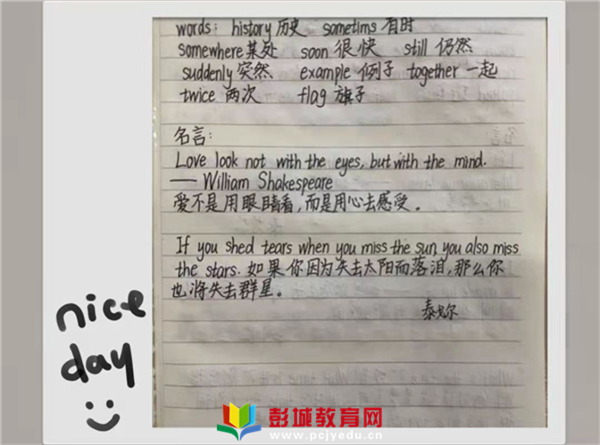 words: history 历史 sometims 有时
somewhere 某处 soon 很快 still 仍然
suddenly 突然 example 例子 together 一起
twice 两次 flag 旗子
名言:
Love look not with the eyes, but with the mind.
—— William Shakespeare
爱不是用眼睛看,而是用心去感受。
If you shed tears when you miss the sun, you also miss
the stars. 如果你因为失去太阳而落泪,那么你
也将失去群星。
泰戈尔
nice
day
彭城教育网
www.pcjyedu.cn